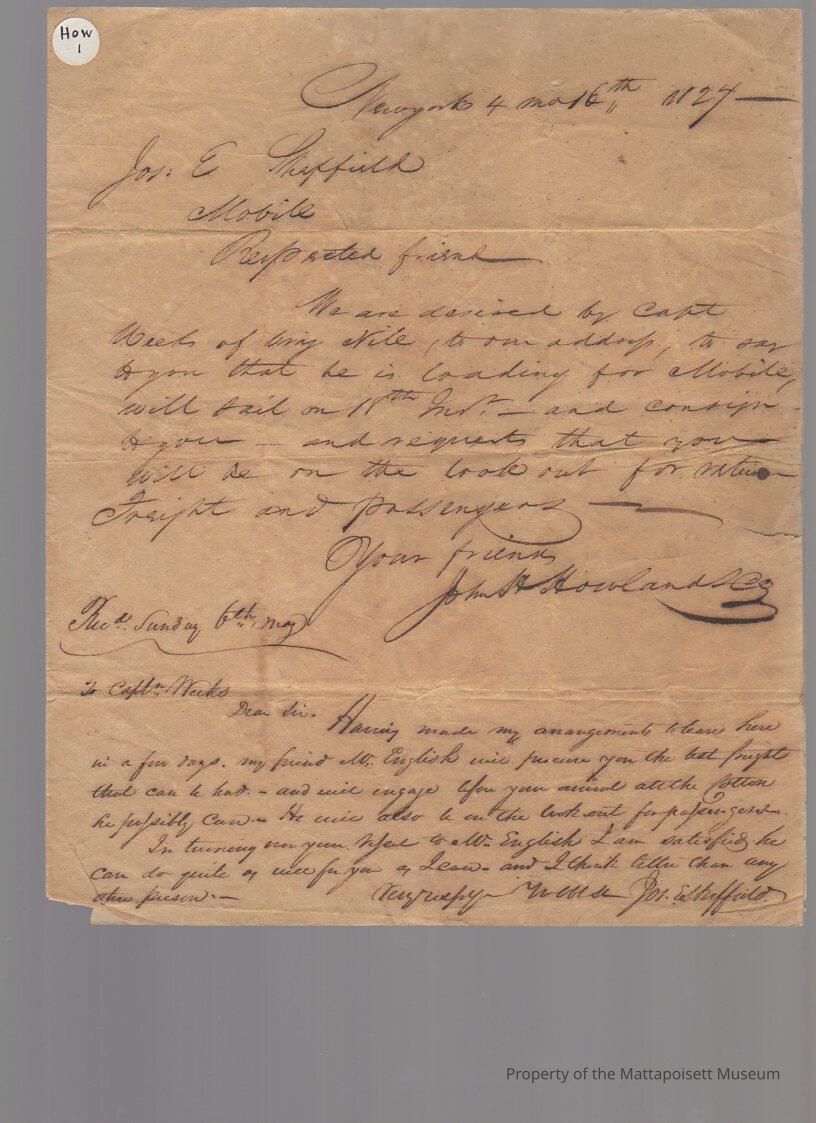 How
1
Newyork 4 mo 16th 1827
Jos: E Sheffield
Mobile
Respected friend
We are desired by Capt
Weeks of brig Nile, to our address, to say
to you that he is loading for Mobile,
will sail on 18th Inst. — and consign
to you — and requests that you
will be on the look out for return
Freight and passengers —
Your friends
John H Howland & Co
Recd. Sunday 6th. May
To Captn. Weeks
Dear Sir. Having made my arrangements to leave here
in a few days. my friend Mr. English will procure you the best freight
that can be had. — and will engage before your arrival all the Cotton
he possibly can. — He will also be on the look out for passengers.
In turning over your Vessel to Mr. English I am satisfied he
can do quite as well for you as I can — and I think better than any
other person. — Very respy Yr Obt St Jos. E Sheffield.
Property of the Mattapoisett Museum